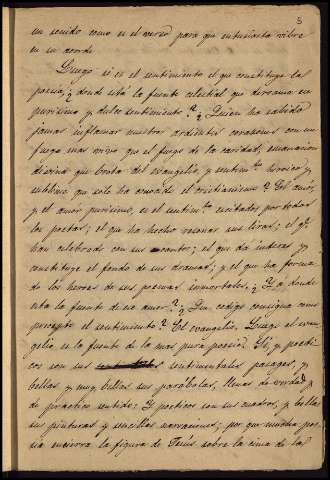 5
un sonido como es el verso para que entusiasta vibre
en su acorde
Luego si es el sentimiento el que constituye la
poesía, ¿donde esta la fuente celestial que derrama su
purisimo y dulce sentimiento? ¿Quien ha sabido
jamas inflamar nuestros ardientes corazones con un
fuego mas vivo que el fuego de la caridad, emanacion
divina que brota del evangelio, y sentimto heroico y
sublime que solo ha conocido el cristianismo? El amor,
y el amor purisimo, es el sentimto escitados por todos
los poetas; el que ha hecho resonar sus liras; el q.
han celebrado con sus cantos; el que da interes y
constituye el fondo de sus dramas; y el que ha forma
do los heroes de sus poemas inmortales, ¿Y a donde
esta la fuente de ese amor? ¿Que codigo consigna como
precepto el sentimiento? El evangelio. Luego el evan
gelio es la fuente de la mas pura poesia. Si, y poeti
cos son sus sentimentales pasages, y
bellas y muy bellas sus parábolas, llenas de verdad y
de practico sentido: Y poeticos son sus cuadros, y bellas
sus pinturas y sencillas narraciones; por que mucha poe
sia encierra la figura de Jesús sobre la cima de las